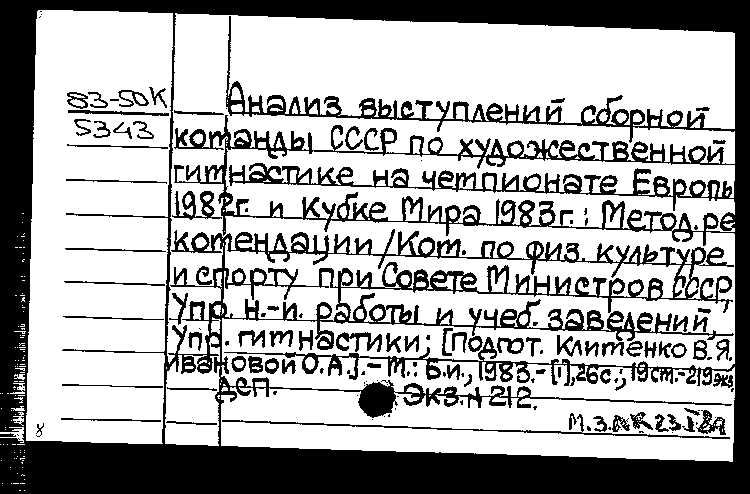 83-50К
5343
Анализ выступлений сборной
команды СССР по художественной
гимнастике на чемпионате Европы
1982г. и Кубке Мира 1983г.: Метод. ре
комендации /Ком. по физ. культуре
и спорту при Совете Министров СССР,
Упр. н.-и. работы и учеб. заведений,
Упр. гимнастики; [Подгот. Клименко В.Я.
Ивановой О.А.]. - М.: Б.и., 1983. - [1], 26с.; 19см. - 219экз.
ДСП. Экз. N 212.
М.З.
8